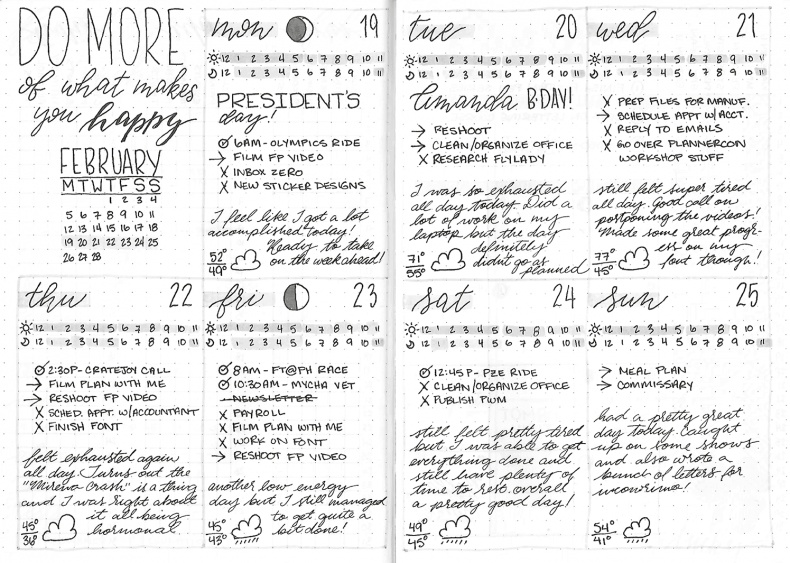 DO MORE
of what makes
you happy
FEBRUARY
M T W T F S S
1 2 3 4
5 6 7 8 9 10 11
12 13 14 15 16 17 18
19 20 21 22 23 24 25
26 27 28
mon 19
12 1 2 3 4 5 6 7 8 9 10 11
12 1 2 3 4 5 6 7 8 9 10 11
PRESIDENT'S
day!
6AM - OLYMPICS RIDE
→ FILM FP VIDEO
X INBOX ZERO
X NEW STICKER DESIGNS
I feel like I got a lot
accomplished today!
Ready to take
on the week ahead!
52°
49°
tue 20
12 1 2 3 4 5 6 7 8 9 10 11
12 1 2 3 4 5 6 7 8 9 10 11
Amanda B-DAY!
→ RESHOOT
→ CLEAN/ORGANIZE OFFICE
X RESEARCH FLYLADY
I was so exhausted
all day today. Did a
lot of work on my
laptop but the day
definitely
didn't go as
planned
71°
55°
wed 21
12 1 2 3 4 5 6 7 8 9 10 11
12 1 2 3 4 5 6 7 8 9 10 11
X PREP FILES FOR MANUF.
→ SCHEDULE APPT W/ACCT.
X REPLY TO EMAILS
X GO OVER PLANNERCON
WORKSHOP STUFF
still felt super tired
all day. Good call on
postponing the videos!
Made some great progr-
ess on my
font though!
77°
45°
thu 22
12 1 2 3 4 5 6 7 8 9 10 11
12 1 2 3 4 5 6 7 8 9 10 11
2:30P - CRATEJOY CALL
→ FILM PLAN WITH ME
→ RESHOOT FP VIDEO
X SCHED. APPT. W/ACCOUNTANT
X FINISH FONT
felt exhausted again
all day. Turns out the
"Mirena Crash" is a thing
and I was right about
it all being
hormonal.
45°
36°
fri 23
12 1 2 3 4 5 6 7 8 9 10 11
12 1 2 3 4 5 6 7 8 9 10 11
8AM - FT@PH RACE
10:30AM - MYCHA VET
NEWSLETTER
X PAYROLL
X FILM PLAN WITH ME
X WORK ON FONT
→ RESHOOT FP VIDEO
another low energy
day but I still managed
to get quite a
bit done!
45°
43°
sat 24
12 1 2 3 4 5 6 7 8 9 10 11
12 1 2 3 4 5 6 7 8 9 10 11
12:45P - PZE RIDE
X CLEAN/ORGANIZE OFFICE
X PUBLISH PWM
still felt pretty tired
but I was able to get
everything done and
still have plenty of
time to rest. overall
a pretty good day!
49°
45°
sun 25
12 1 2 3 4 5 6 7 8 9 10 11
12 1 2 3 4 5 6 7 8 9 10 11
→ MEAL PLAN
→ COMMISSARY
had a pretty great
day today. caught
up on some shows
and also wrote a
bunch of letters for
incowrimo!
54°
41°